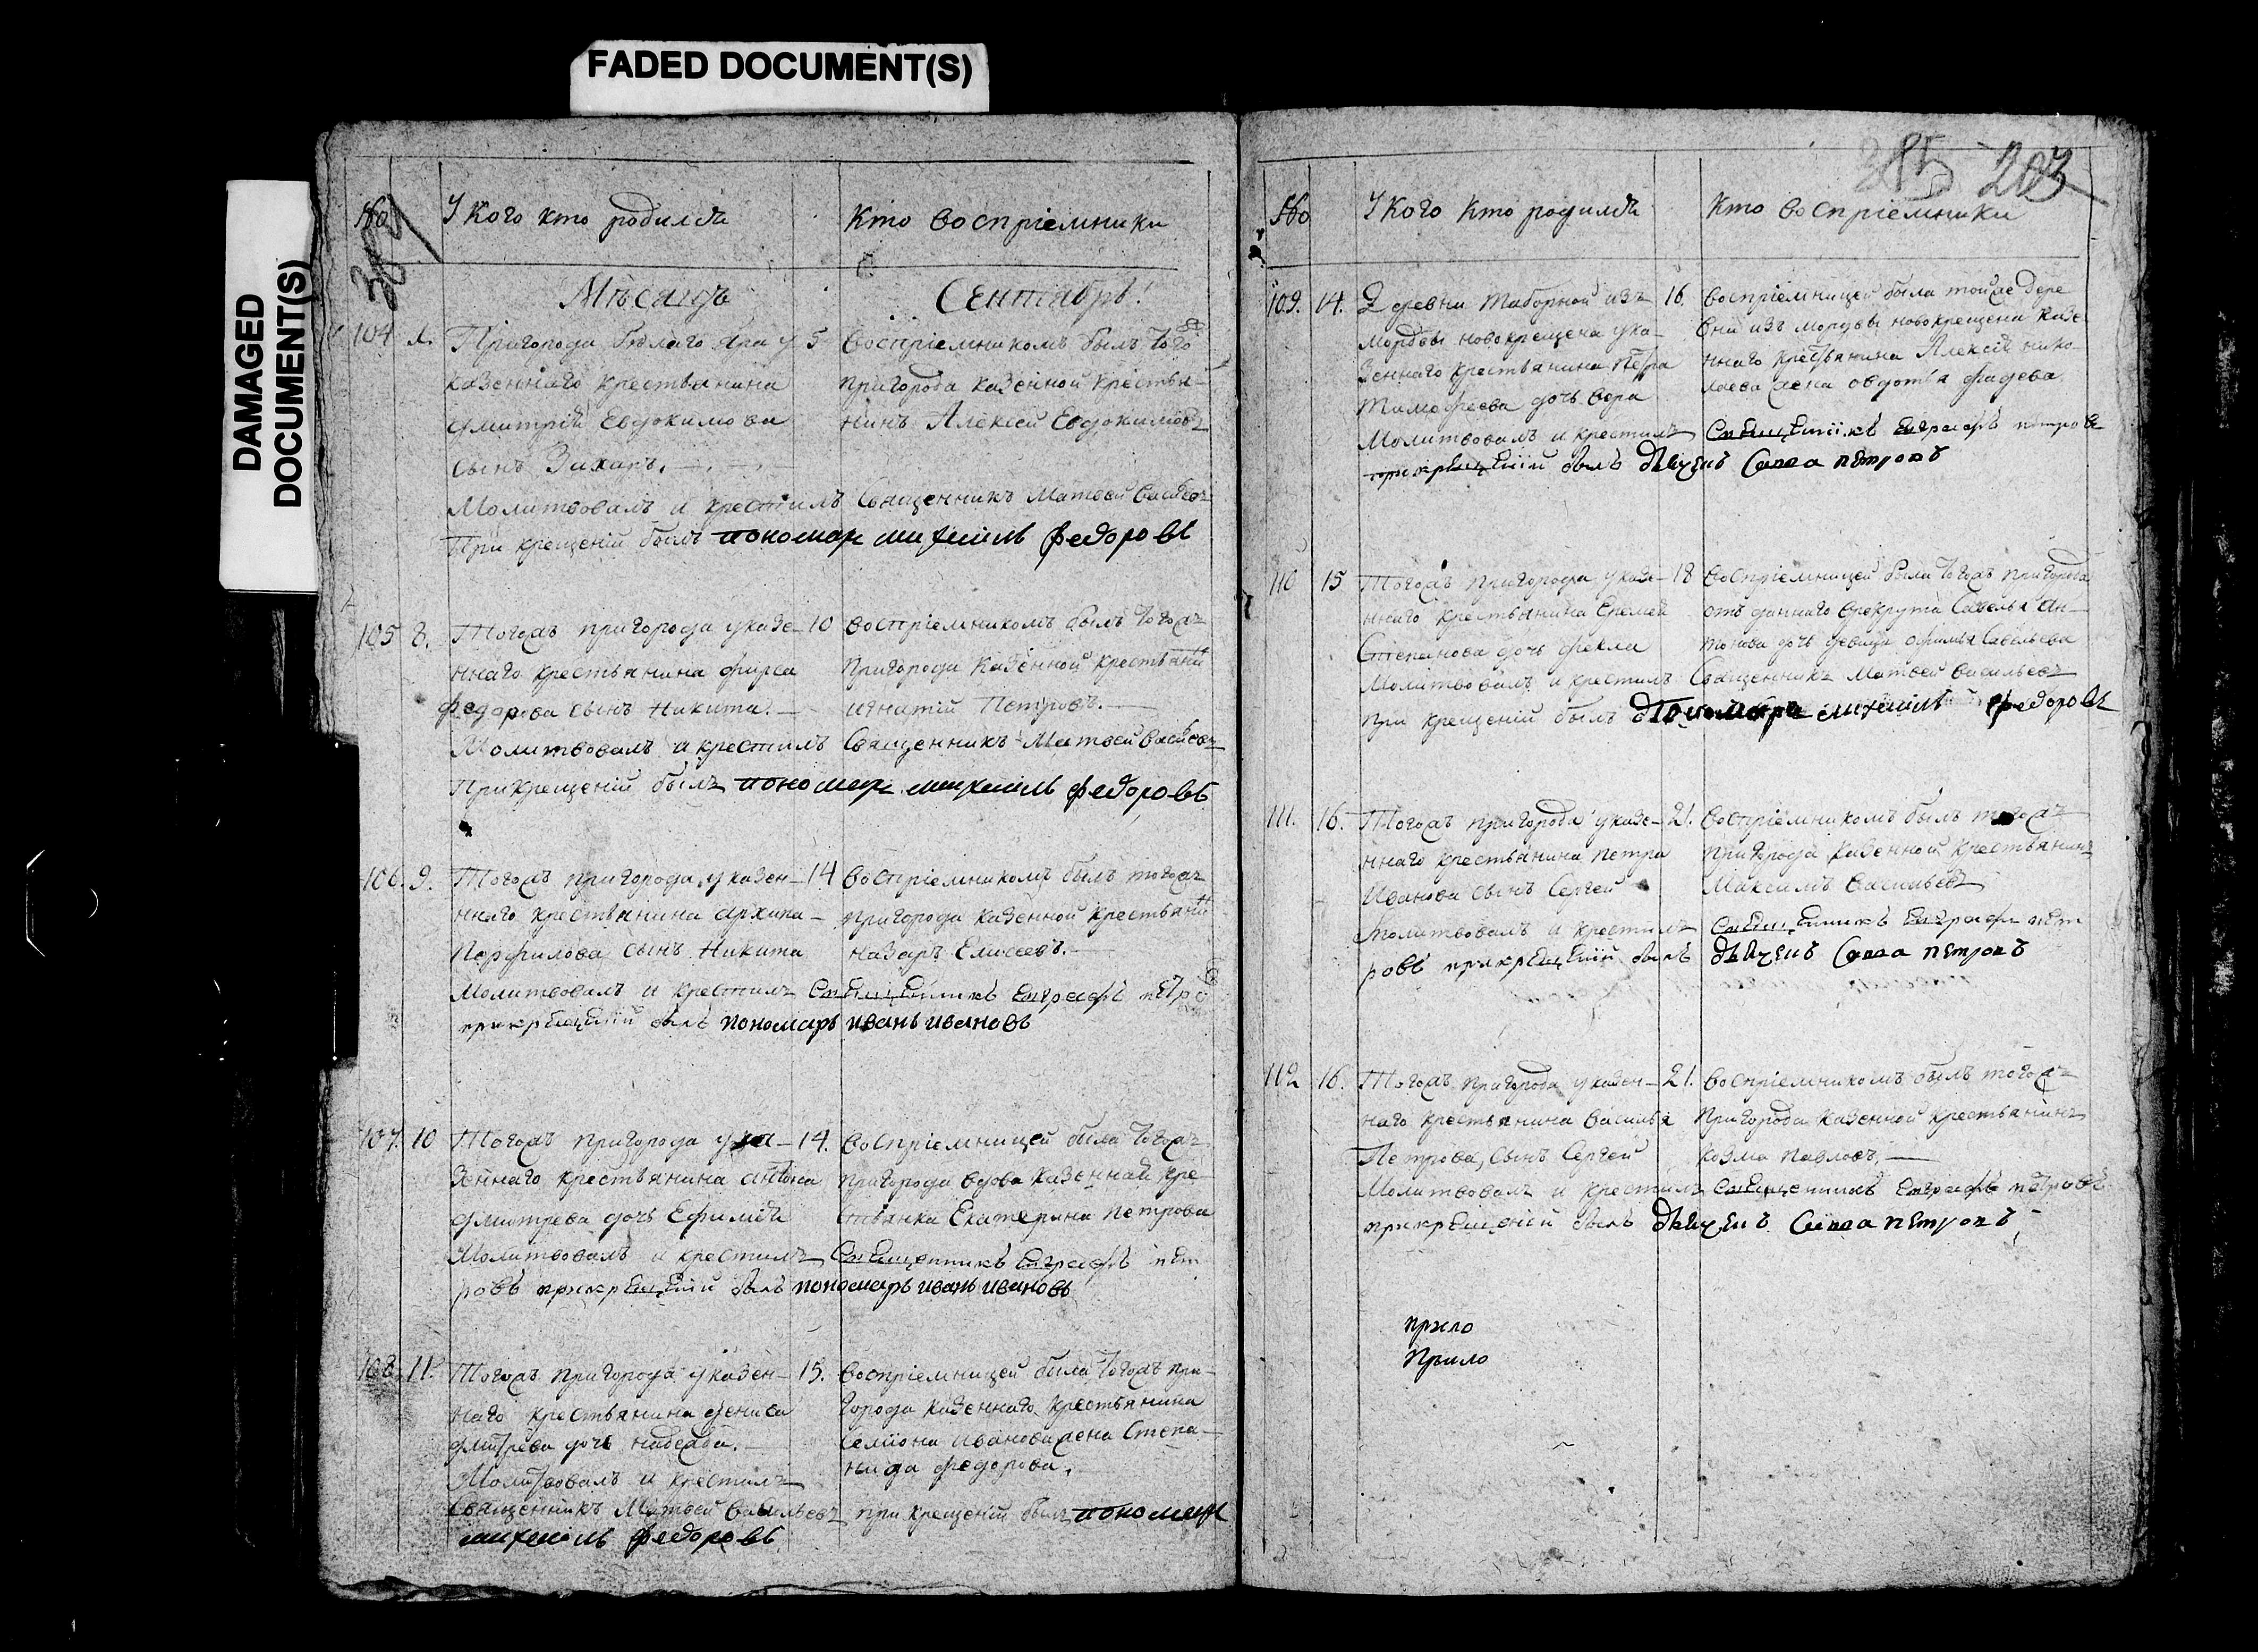 FADED DOCUMENT(S)
DAMAGED
DOCUMENT(S)
№
У кого кто родился
Кто восприемники
Мѣсяцъ
Сентябрь
104
Пригорода бѣлаго яра у
казеннаго крестьянина
дмитрій Евдокимова
сынъ Захаръ.
5
Восприемникомъ былъ того
пригорода казенной крестья-
нинъ Алексей Евдокимовъ
Молитвовалъ и крестилъ Священникъ Матвей Васильевъ
При крещеніи былъ пономаръ михаилъ федоровъ
105 8.
Тогожъ пригорода у казе-
ннаго крестьянина фирса
федорова сынъ Никита.
10
восприемникомъ былъ тогожъ
Пригорода казенной крестьянин
игнатій Петровъ.
Молитвовалъ и крестилъ Священникъ Матвей Васильевъ
При крещеніи былъ пономаръ михаилъ федоровъ
106. 9.
Тогожъ пригорода у казен-
ннаго крестьянина архипа
Порфилова сынъ Никита
14
Восприемникомъ былъ тогожъ
пригорода казенной крестьянин
Назаръ Елисеевъ.
Молитвовалъ и крестилъ Священникъ Евграфъ петро
прикрещеніи былъ пономаръ иванъ ивановъ
107. 10
Тогожъ пригорода у ка-
зеннаго крестьянина антона
дмитрева дочь Ефимія
14.
Восприемницей была тогожъ
пригорода вдова казенная кре-
стьянка Екатерина петрова
Молитвовалъ и крестилъ Священникъ Евграфъ пет
ровъ прикрещеніи былъ пономаръ иванъ ивановъ
108. 11.
Тогожъ пригорода у казен-
наго крестьянина дениса
дмитрева дочь надежда.
15.
Восприемницей была тогожъ при-
города казеннаго крестьянина
семиона иванова жена Степа-
нида федорова.
Молитвовалъ и крестилъ
Священникъ Матвей Васильевъ при крещеніи былъ пономаръ
михаилъ федоровъ
203
№
У кого кто родился
Кто восприемники
109. 14.
Деревни таборной изъ
мордвы новокрещена у ка-
зеннаго крестьянина петра
тимофеева дочь вера
16.
Восприемницей была тойже дере
вни изъ мордвы новокрещена казе
ннаго крестьянина Алексія нико-
лаева жена овдотья фадева.
Молитвовалъ и крестилъ Священникъ Евграфъ петровъ
при крещеніи былъ дьячекъ Савва петровъ
110 15
Тогожъ пригорода у казе-
ннаго крестьянина Еремей
Степанова дочь фекла
18
Восприемницей была тогожъ пригорода
отъ даннаго врекруты Савелья Ан-
тонова дочь девица офимья Савельева
Молитвовалъ и крестилъ Священникъ Матвей Васильевъ
при крещеній былъ пономаръ михаилъ федоровъ
111. 16.
Тогожъ пригорода у казе-
ннаго крестьянина петра
Иванова сынъ Сергей
21.
Восприемникомъ былъ тогожъ
пригорода казенной крестьянинъ
Максимъ Васильевъ
Молитвовалъ и крестилъ Священникъ Евграфъ пет
ровъ прикрещеніи былъ дьячекъ Савва петровъ
112 16.
Тогожъ пригорода у казен-
наго крестьянина Василья
Петрова, сынъ Сергей
21.
Восприемникомъ былъ тогожъ
Пригорода казенной крестьянинъ
козма павловъ,
Молитвовалъ и крестилъ священникъ Евграфъ петровъ
прикрещеній былъ дьячекъ Савва петровъ